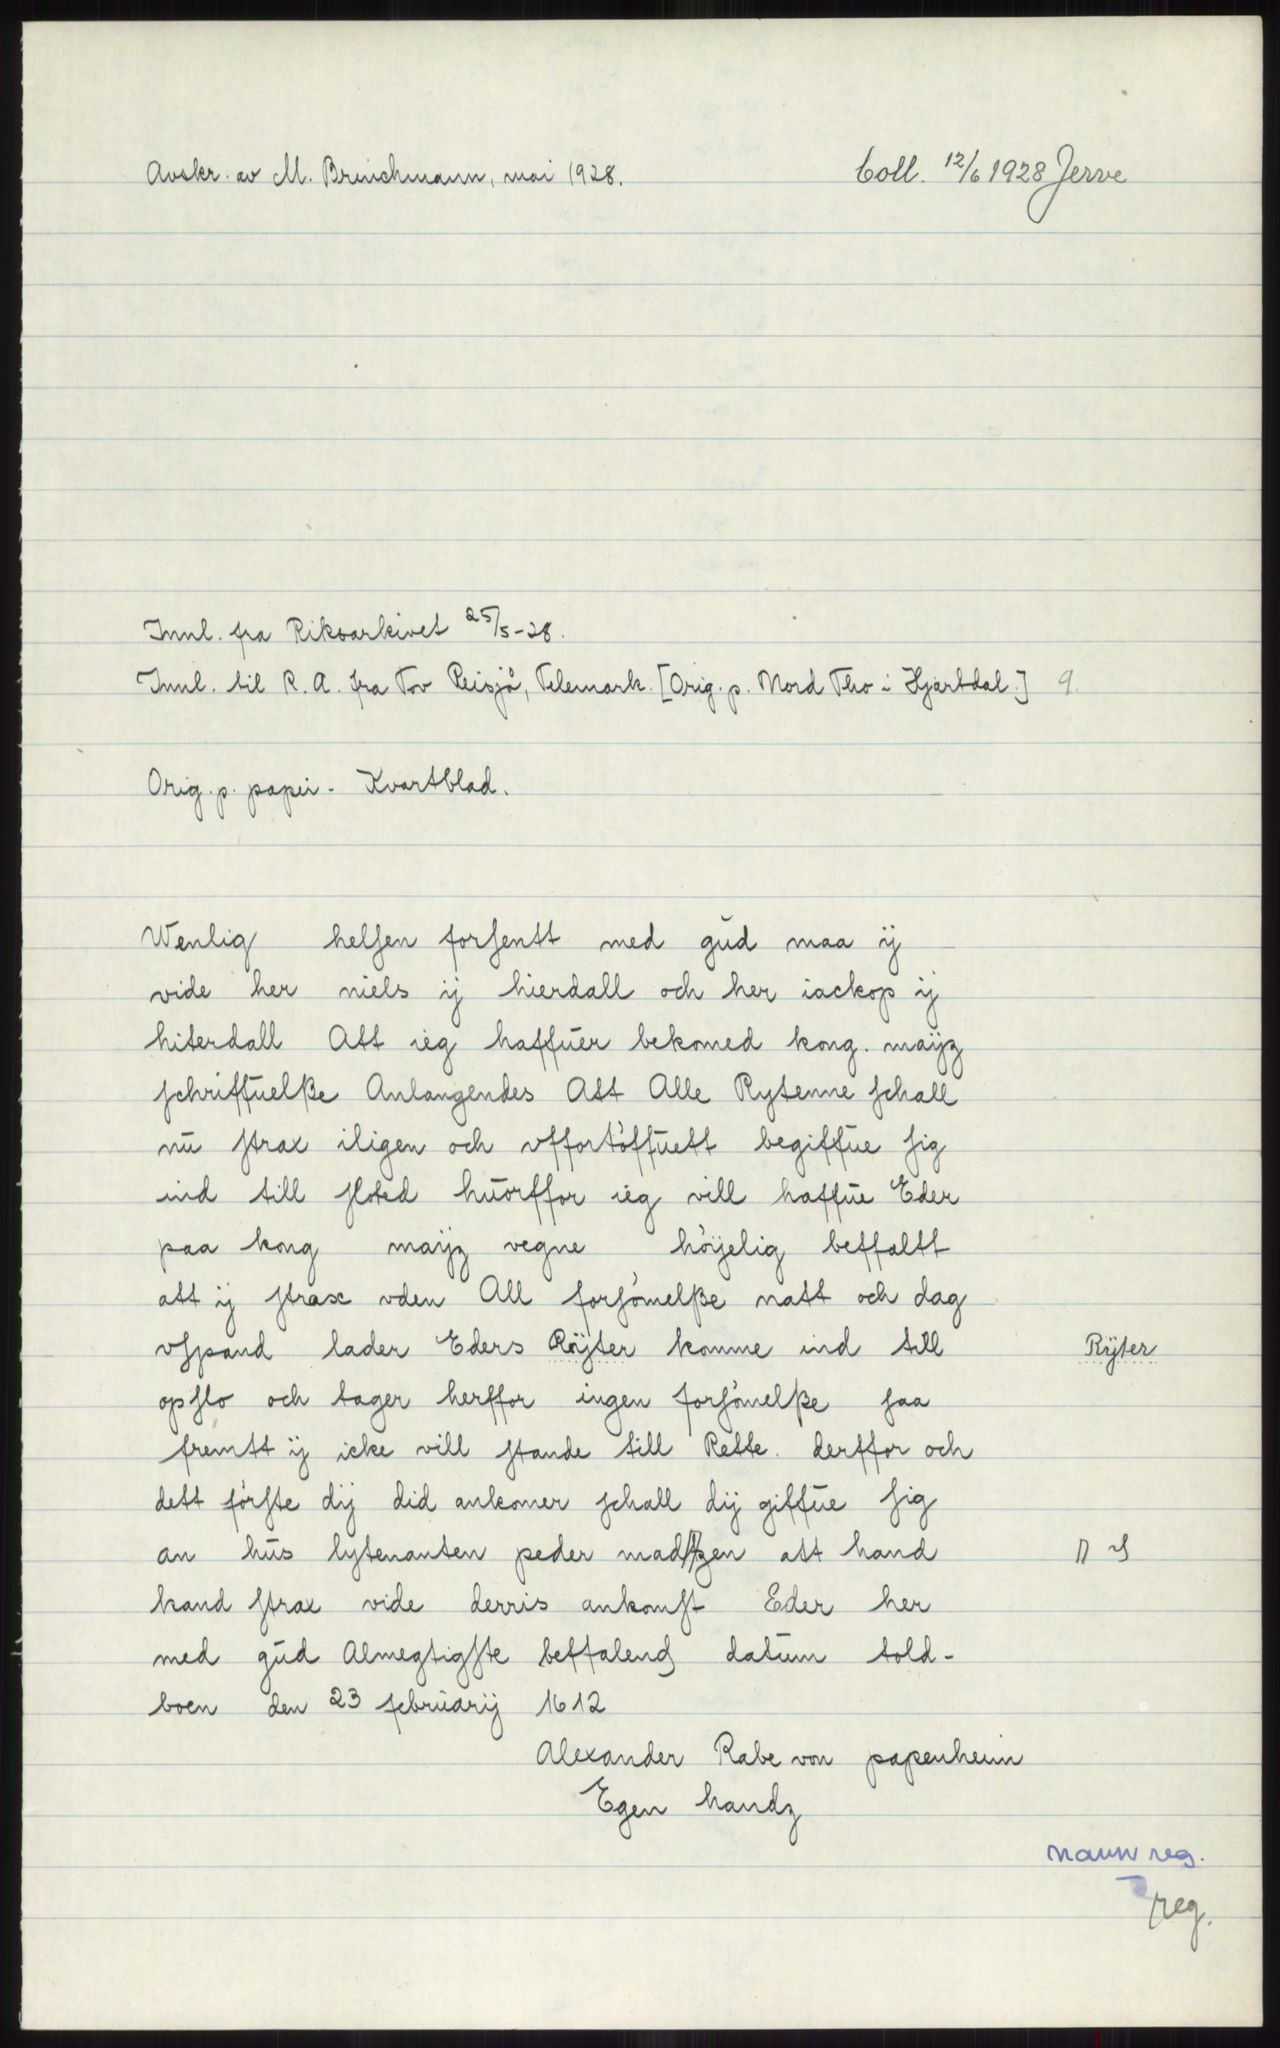 Avskr. av M. Brinchmann, mai 1928.
Coll. 12/6 1928 Jerve
Innl. fra Riksarkivet 25/5-28.
Innl. til R. A. fra Tov Reisjå, Telemark. [Orig. p. Nord Tho i Hjartdal.] 9.
Orig. p. papir. Kvartblad.
Wenlig helſen forſentt med gud maa ij
vide her niels ij hierdall och her iackop ij
hiterdall Att ieg haffuer bekomed kong. mayz
ſchriffuelße Anlangendes Att Alle Rytenne ſchall
nu ſtrax iligen och vffortöffuett begiffue ſig
ind till ſloted huorffor ieg vill haffue Eder
paa kong mayz vegne höyelig beffaltt
att ij ſtrax vden All forſömelße natt och dag
vſpand lader Eders Rÿter komme ind till
Rÿter
opſlo och tager herffor ingen forſömelße ſaa
fremtt ij icke vill ſtande till Rette. derffor och
dett förſte dij did ankomer ſchall dij giffue ſig
an hus lytenanten peder madſzen att hand
kand ſtrax vide derris ankomſt Eder her
med gud Almegtigſte beffalend datum told-
boen den 23 februarij 1612
Alexander Rabe von papenheim
Egen handz
navn reg.
reg.